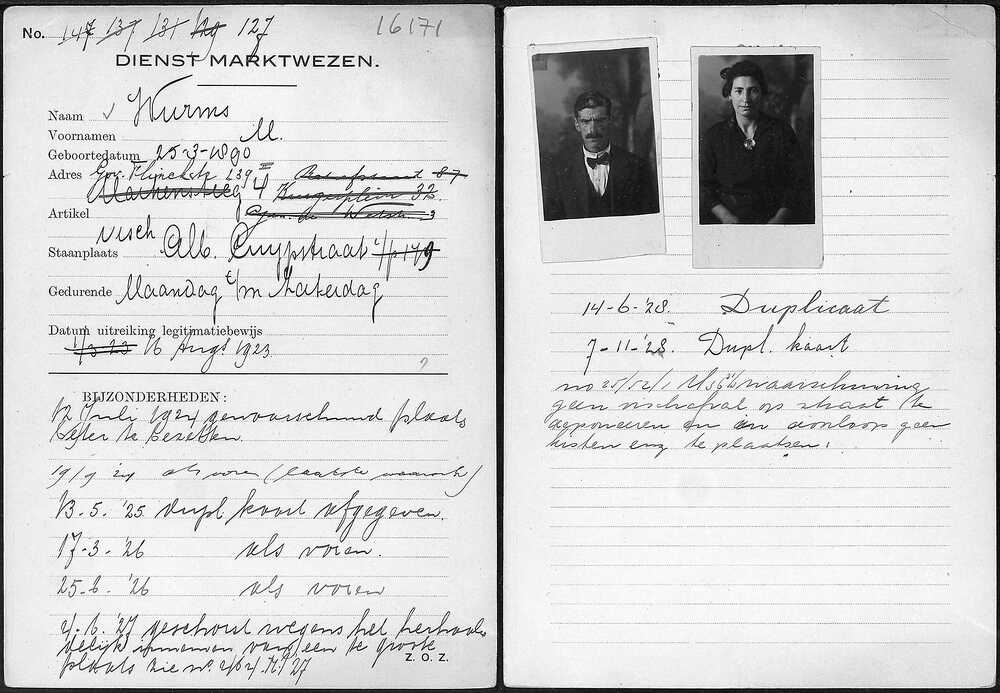 No. 147 137 131 129 127 16171
DIENST MARKTWEZEN.
Naam Wurms
Voornamen M.
Geboortedatum 25-3-1890
Adres Gov. Flinckstr 239 III
4 32.
Artikel 3
visch
Staanplaats Alb. Cuypstraat 179
Gedurende Maandag t/m Zaterdag
Datum uitreiking legitimatiebewijs
1/3-23 16 Aug. 1923
?
BIJZONDERHEDEN:
12 Juli 1924 gewaarschuwd plaats
beter te bezetten.
19/9 24 als voren (laatste waarsch)
13-5-'25 dupl kaart afgegeven.
17-3-'26 als voren.
25-6-'26 als voren
4-6-'27 geschorst wegens het herhaal-
delijk innemen van een te groote
plaats zie no. 27
Z. O. Z.
14-6-'28. Duplicaat
7-11-'28. Dupl. kaart
no 25/52/1 waarschuwing
geen vischafval op straat te
deponeren en en doorloop geen
kisten enz te plaatsen.